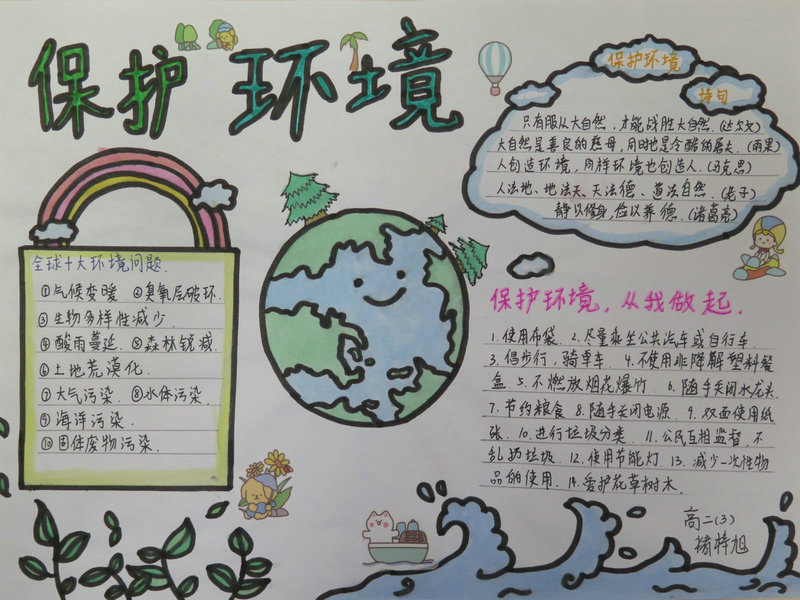 保护环境
保护环境
诗句
只有服从大自然，才能战胜大自然.(达尔文)
大自然是善良的慈母，同时也是冷酷的屠夫.(雨果)
人创造环境，同样环境也创造人.(马克思)
人法地、地法天、天法德、道法自然.(老子)
静以修身，俭以养德.(诸葛亮)
全球十大环境问题.
①气候变暖 ②臭氧层破坏.
③生物多样性减少.
④酸雨蔓延. ⑤森林锐减.
⑥土地荒漠化.
⑦大气污染. ⑧水体污染.
⑨海洋污染.
⑩固体废物污染.
保护环境，从我做起.
1.使用布袋. 2.尽量乘坐公共汽车或自行车.
3.倡步行，骑单车. 4.不使用非降解塑料餐
盒 5.不燃放烟花爆竹 6.随手关闭水龙头.
7.节约粮食 8.随手关闭电源. 9.双面使用纸
张. 10.进行垃圾分类. 11.公民互相监督，不
乱扔垃圾. 12.使用节能灯. 13.减少一次性物
品的使用. 14.爱护花草树木.
高二(3)
梓旭